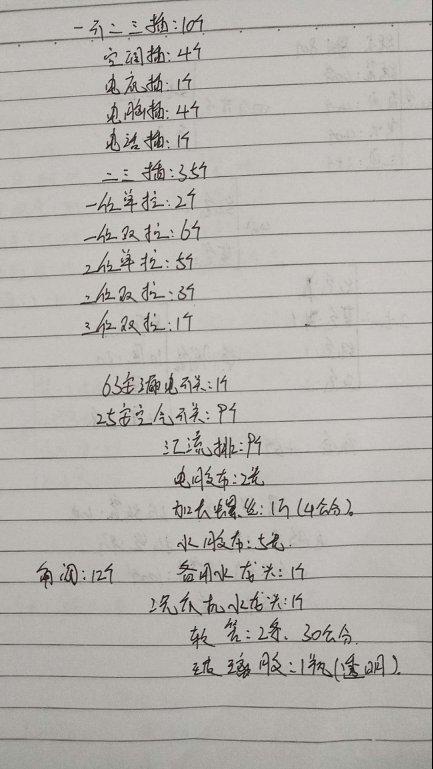 一开二三插:10个
空调插:4个
电视插:1个
电脑插:4个
电话插:1个
二三插:35个
一位单控:2个
一位双控:6个
2位单控:5个
二位双控:3个
三位双控:1个
63安漏电开关:1个
25安空气开关:9个
汇流排:9个
电胶布:2卷
加长螺丝:1斤(4公分)。
水胶布:5卷
角阀:12个 备用水龙头:1个
洗衣机水龙头:1个
软管:2条、30公分
玻璃胶:1瓶(透明)。